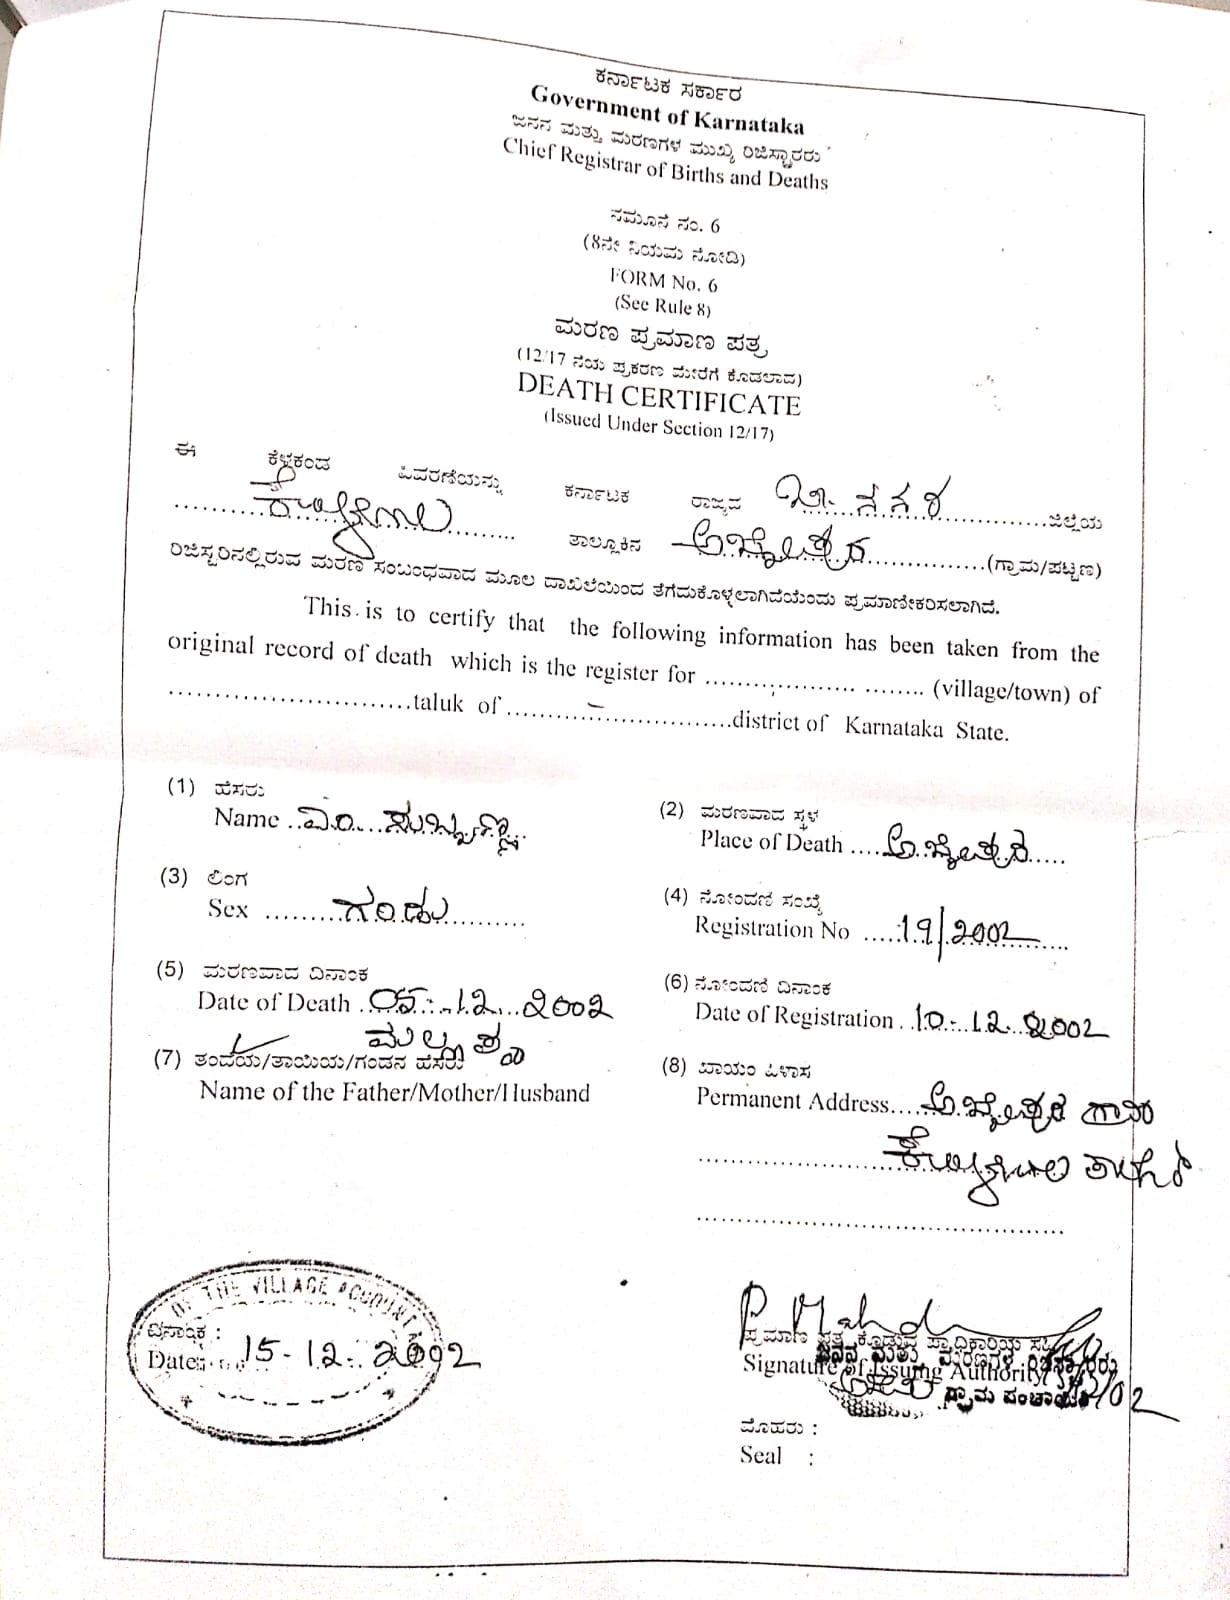 ಕರ್ನಾಟಕ ಸರ್ಕಾರ
Government of Karnataka
ಜನನ ಮತ್ತು ಮರಣಗಳ ಮುಖ್ಯ ರಿಜಿಸ್ಟ್ರಾರರು
Chief Registrar of Births and Deaths
ನಮೂನೆ ನಂ. 6
(8ನೇ ನಿಯಮ ನೋಡಿ)
FORM No. 6
(See Rule 8)
ಮರಣ ಪ್ರಮಾಣ ಪತ್ರ
(12/17 ನೆಯ ಪ್ರಕರಣ ಮೇರೆಗೆ ಕೊಡಲಾದ)
DEATH CERTIFICATE
(Issued Under Section 12/17)
ಈ ಕೆಳಕಂಡ ವಿವರಣೆಯನ್ನು ಕರ್ನಾಟಕ ರಾಜ್ಯದ ಚಾ. ನಗರ ಜಿಲ್ಲೆಯ
ಕೊಳ್ಳೇಗಾಲ ತಾಲ್ಲೂಕಿನ (ಗ್ರಾಮ/ಪಟ್ಟಣ)
ರಿಜಿಸ್ಟರಿನಲ್ಲಿರುವ ಮರಣ ಸಂಬಂಧವಾದ ಮೂಲ ದಾಖಲೆಯಿಂದ ತೆಗೆದುಕೊಳ್ಳಲಾಗಿದೆಯೆಂದು ಪ್ರಮಾಣೀಕರಿಸಲಾಗಿದೆ.
This is to certify that the following information has been taken from the
original record of death which is the register for .................... ........ (village/town) of
..............................taluk of ............................district of Karnataka State.
(1) ಹೆಸರು
Name ಎಂ. ಸುಬ್ಬಣ್ಣ
(2) ಮರಣವಾದ ಸ್ಥಳ
Place of Death
(3) ಲಿಂಗ
Sex ಗಂಡು
(4) ನೋಂದಣಿ ಸಂಖ್ಯೆ
Registration No 19/2002
(5) ಮರಣವಾದ ದಿನಾಂಕ
Date of Death 05-12-2002
(6) ನೋಂದಣಿ ದಿನಾಂಕ
Date of Registration 10-12-2002
(7) ತಂದೆಯ/ತಾಯಿಯ/ಗಂಡನ ಹೆಸರು
Name of the Father/Mother/Husband
(8) ಖಾಯಂ ವಿಳಾಸ
Permanent Address
ಕೊಳ್ಳೇಗಾಲ
OF THE VILLAGE ACCOUNT
ದಿನಾಂಕ :
Date: 15-12-2002
ಪ್ರಮಾಣ ಪತ್ರ ಕೊಡುವ ಪ್ರಾಧಿಕಾರಿಯ ಸಹಿ
ಜನನ ಮತ್ತು ಮರಣಗಳ ರಿಜಿಸ್ಟ್ರಾರರು
Signature of Issuing Authority
ಗ್ರಾಮ ಪಂಚಾಯಿತಿ
ಮೊಹರು :
Seal :